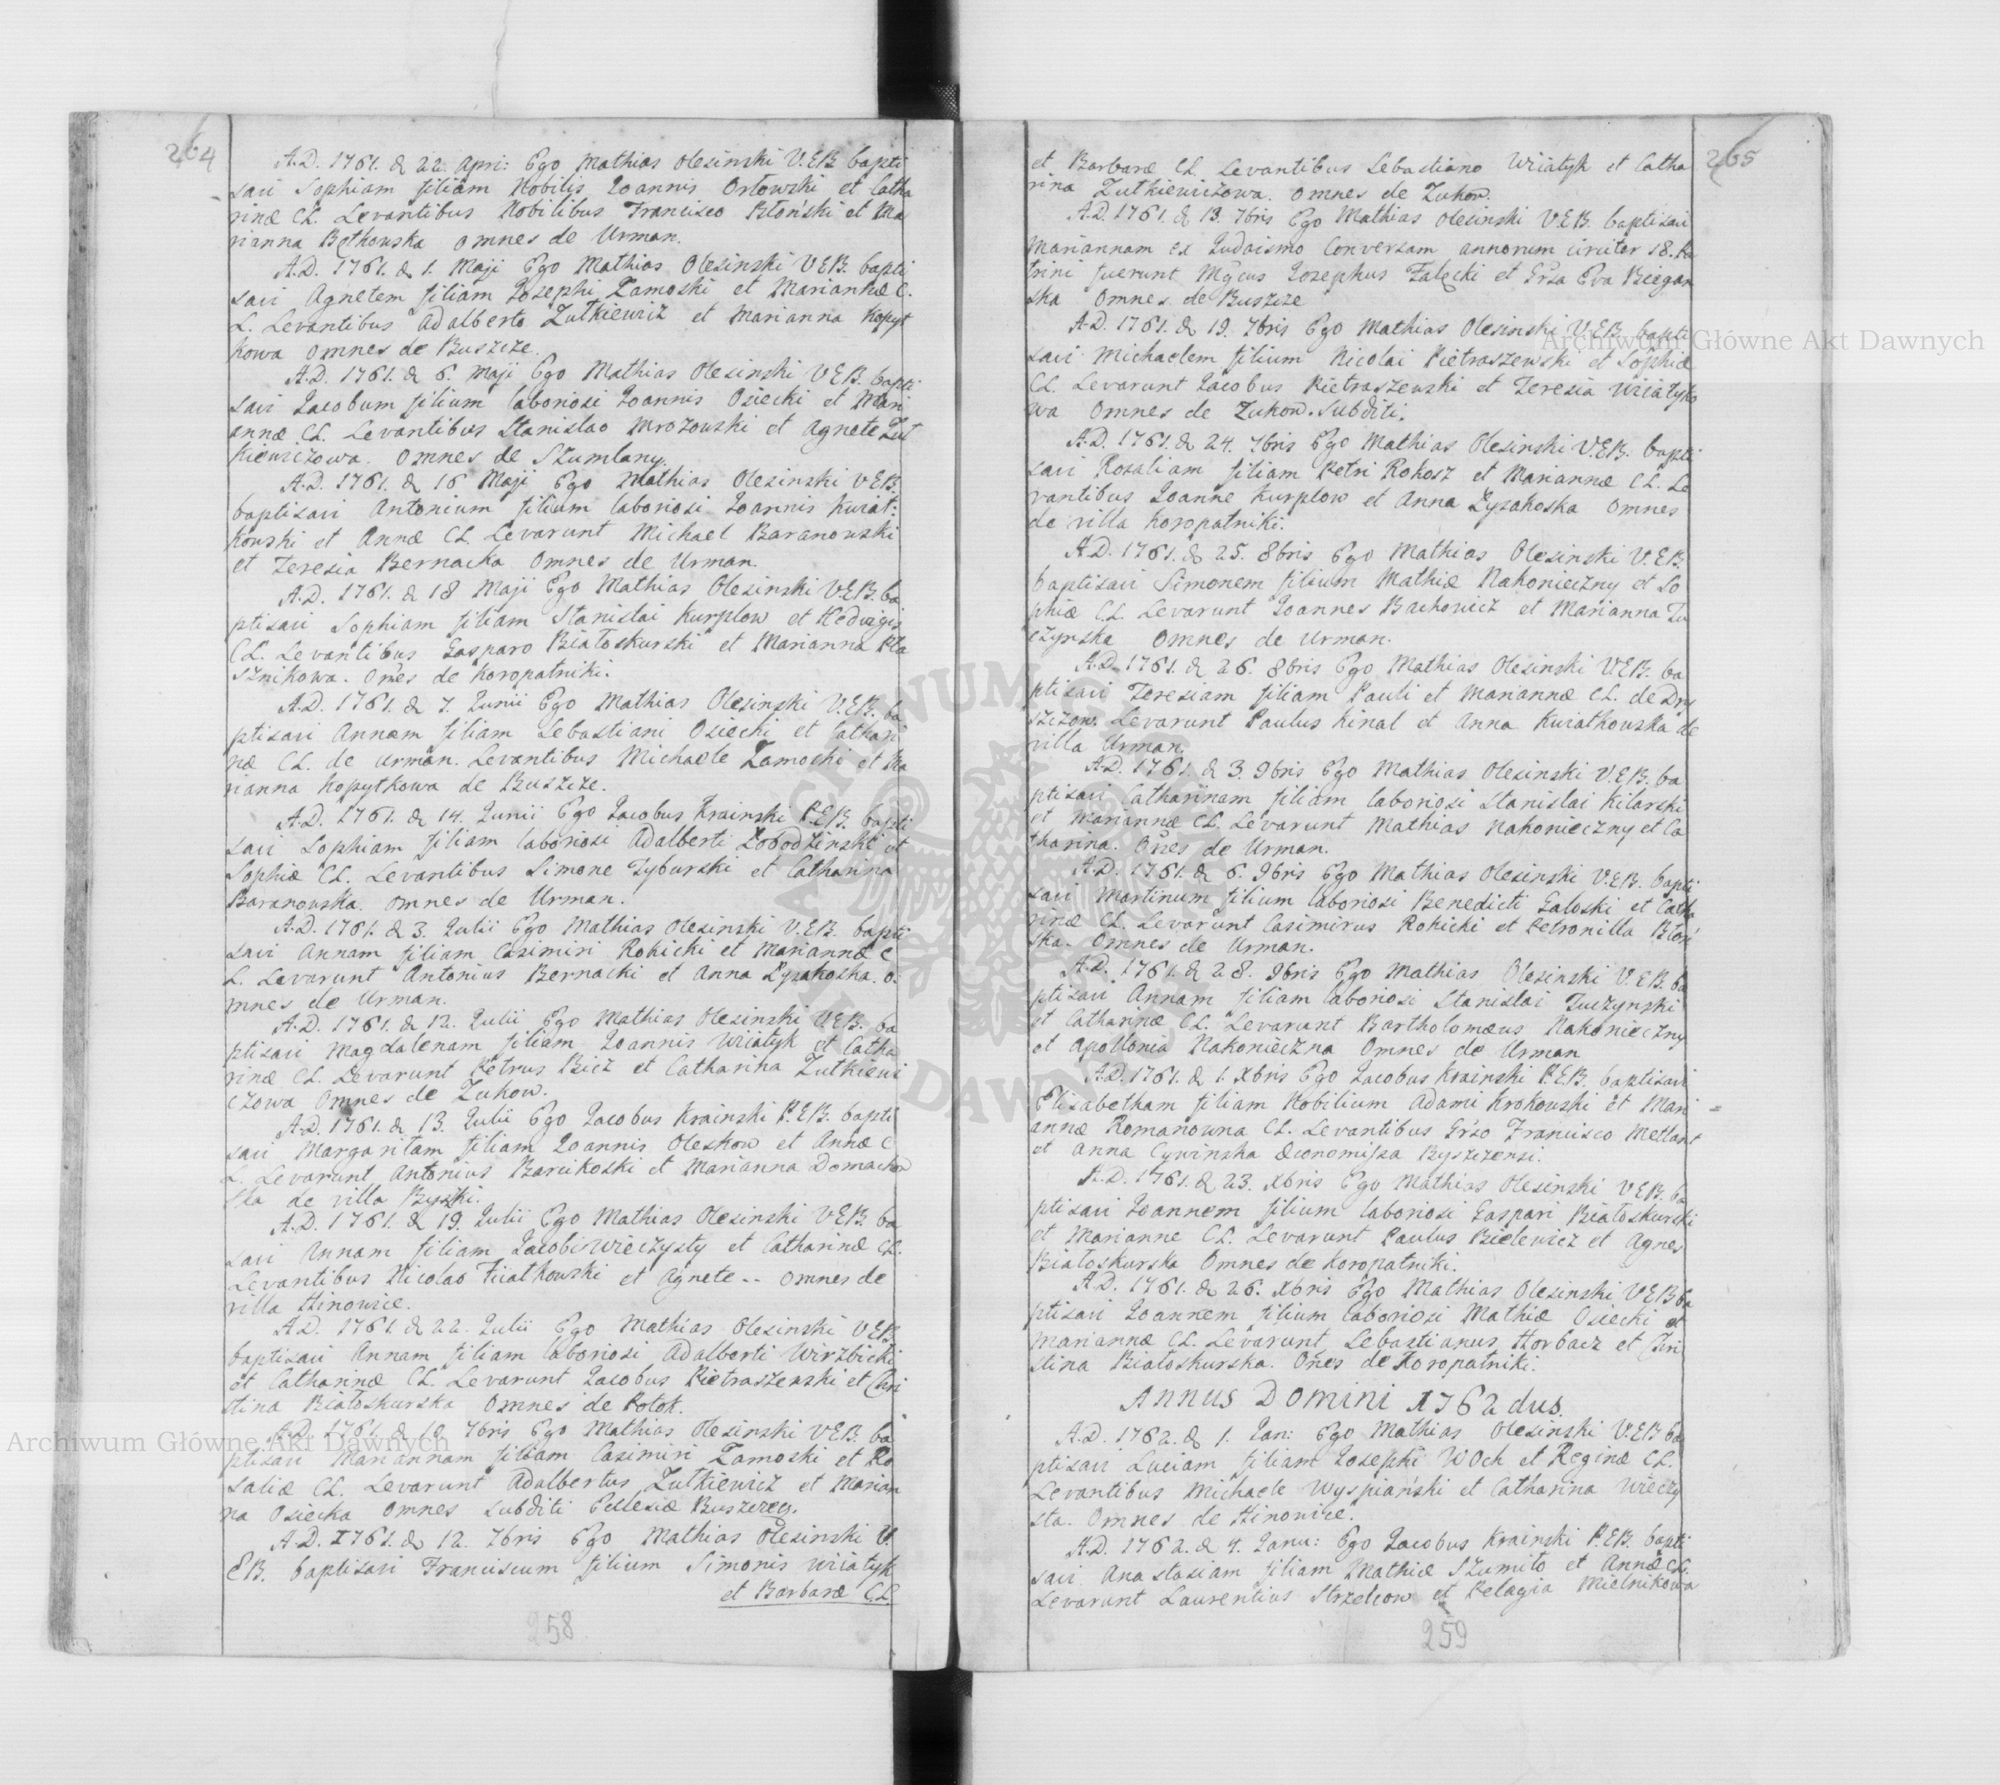 264
A.D. 1761. d. 22. Apri: Ego Mathias Olesinski V.E.B. bapti
savi Sophiam filiam Nobilis Joannis Orłowski et Catha
rinæ CL. Levantibus Nobilibus Francisco Błoński et Ma
rianna Bętkowska omnes de Urman.
A.D. 1761. d. 1. Maji Ego Mathias Olesinski V.E.B. bapti
savi Agnetem filiam Josephi Zamoski et Mariannæ C.
L. Levantibus Adalberto Zutkiewicz et Marianna Kopyt
kowa omnes de Buszcze.
A.D. 1761. d. 6. Maji Ego Mathias Olesinski V.E.B. bapti
savi Jacobum filium laboriosi Joannis Osiecki et Mari
annæ CL. Levantibus Stanislao Mrozowski et Agnete Zut
kiewiczowa. omnes de Szumlany.
A.D. 1761. d. 16 Maji Ego Mathias Olesinski V.E.B.
baptisavi Antonium filium laboriosi Joannis Kwiat:
kowski et Annæ CL. Levarunt Michael Baranowski
et Teresia Bernacka Omnes de Urman.
A.D. 1761. d. 18 Maji Ego Mathias Olesinski V.E.B. ba
ptisavi Sophiam filiam Stanislai Kurplow et Hedvigis
CL. Levantibus Gasparo Białoskurski et Marianna Pta
sznikowa. Oñes de Koropatniki.
A.D. 1761. d. 7. Junii Ego Mathias Olesinski V.E.B. ba
ptisavi Annam filiam Sebastiani Osiecki et Cathari
næ CL. de Urman. Levantibus Michaele Zamoski et Ma
rianna Kopytkowa de Buszcze.
A.D. 1761. d. 14. Junii Ego Jacobus Krainski P.E.B. bapti
savi Sophiam filiam laboriosi Adalberti Łobodzinski et
Sophiæ CL. Levantibus Simone Tyburski et Catharina
Baranowska. omnes de Urman.
A.D. 1761. d. 3. Julii Ego Mathias Olesinski V.E.B. bapti
savi Annam filiam Casimiri Rokicki et Mariannæ C
L. Levarunt Antonius Bernacki et Anna Łyzakoska. o.
mnes de Urman.
A.D. 1761. d. 12. Julii Ego Mathias Olesinski V.E.B. ba
ptisavi Magdalenam filiam Joannis Wiiatyk et Catha
rinæ CL. Levarunt Petrus Bicz et Catharina Zutkiewi
czowa Omnes de Zukow.
A.D. 1761. d. 13. Julii Ego Jacobus Krainski P.E.B. bapti
savi Margaritam filiam Joannis Oleskow et Annæ C
L. Levarunt Antonius Barcikoski et Marianna Domachow
ska de villa Byszki.
A.D. 1761. d. 19. Julii Ego Mathias Olesinski V.E.B. ba
savi Annam filiam Jacobi Wieczysty et Catharinæ CL.
Levantibus Nicolao Fiiatkowski et Agnete -- omnes de
villa Hinowice.
A.D. 1761. d. 22. Julii Ego Mathias Olesinski V.E.B.
baptisavi Annam filiam laboriosi Adalberti Wirzbicki
et Catharinæ CL. Levarunt Jacobus Pietraszewski et Chri
stina Białoskurska Omnes de Potok.
A.D. 1761. d. 10. 7bris Ego Mathias Olesinski V.E.B. ba
ptisavi Mariannam filiam Casimiri Zamoski et Ro
saliæ CL. Levarunt Adalbertus Zutkiewicz et Marian
na Osiecka omnes subditi Ecclesiæ Buszczen.
A.D. 1761. d. 12. 7bris Ego Mathias Olesinski V.
E.B. baptisavi Franciscum filium Simonis Wiiatyk
et Barbaræ C.L.
258
265
et Barbaræ CL. Levantibus Sebastiano Wiiatyk et Catha
rina Zutkiewiczowa. Omnes de Zukow.
A.D. 1761. d. 13. 7bris Ego Mathias Olesinski V.E.B. baptisavi
Mariannam ex Judaismo Conversam annorum circiter 18. Pa
trini fuerunt Mgcus Josephus Załęcki et Grsa Eva Biegan
ska Omnes de Buszcze
A.D. 1761. d. 19. 7bris Ego Mathias Olesinski V.E.B. bapti
savi Michaelem filium Nicolai Pietraszewski et Sophiæ
CL. Levarunt Jacobus Pietraszewski et Teresia Wiiatyko
wa Omnes de Zukow. Subditi.
A.D. 1761. d. 24. 7bris Ego Mathias Olesinski V.E.B. bapti
savi Rosaliam filiam Petri Rokosz et Mariannæ CL. Le
vantibus Joanne Kurplow et Anna Łyzakoska Omnes
de villa Koropatniki.
A.D. 1761. d. 25. 8bris Ego Mathias Olesinski V.E.B.
baptisavi Simonem filium Mathiæ Nakonieczny et So
phiæ CL. Levarunt Joannes Bachowicz et Marianna Tu
czynska omnes de Urman.
A.D. 1761. d. 26. 8bris Ego Mathias Olesinski V.E.B. ba
ptisavi Teresiam filiam Pauli et Mariannæ CL. de Dry
szczow. Levarunt Paulus Kinal et Anna Kwiatkowska de
villa Urman.
A.D. 1761. d. 3. 9bris Ego Mathias Olesinski V.E.B. ba
ptisavi Catharinam filiam laboriosi Stanislai Kilarski
et Mariannæ CL. Levarunt Mathias Nakonieczny et Ca
tharina. Oñes de Urman.
A.D. 1761. d. 6. 9bris Ego Mathias Olesinski V.E.B. bapti
savi Martinum filium laboriosi Benedicti Galoski et Catha
rinæ CL. Levarunt Casimirus Rokicki et Petronilla Błoń
ska. Omnes de Urman.
A.D. 1761. d. 28. 9bris Ego Mathias Olesinski V.E.B. ba
ptisavi Annam filiam laboriosi Stanislai Tuczynski
et Catharinæ CL. Levarunt Bartholomæus Nakonieczny
et Apollonia Nakonieczna Omnes de Urman
A.D. 1761. d. 1. Xbris Ego Jacobus Krainski P.E.B. baptisavi
Elisabetham filiam Nobilium Adami Krokowski et Mari
annæ Romanowna CL. Levantibus Grso Francisco Metlant
et Anna Cywinska Œconomissa Byszczensi.
A.D. 1761. d. 23. Xbris Ego Mathias Olesinski V.E.B. ba
ptisavi Joannem filium laboriosi Gaspari Białoskurski
et Marianne CL. Levarunt Paulus Bielewicz et Agnes
Białoskurska Omnes de Koropatniki.
A.D. 1761. d. 26. Xbris Ego Mathias Olesinski V.E.B. ba
ptisavi Joannem filium laboriosi Mathiæ Osiecki et
Mariannæ CL. Levarunt Sebastianus Horbacz et Chri
stina Białoskurska. Oñes de Koropatniki.
Annus Domini 1762dus.
A.D. 1762. d. 1. Jan: Ego Mathias Olesinski V.E.B. ba
ptisavi Luciam filiam Josephi Woch et Reginæ CL.
Levantibus Michaele Wyspiański et Catharina Wieczy
sta. Omnes de Hinowice.
A.D. 1762. d. 4. Janu: Ego Jacobus Krainski P.E.B. bapti
savi Anastasiam filiam Mathiæ Szumiło et Annæ CL.
Levarunt Laurentius Strzelcow et Pelagia Mielnikowa
259
Archiwum Główne Akt Dawnych
Archiwum Główne Akt Dawnych
ARCHIWUM GŁÓWNE AKT DAWNYCH